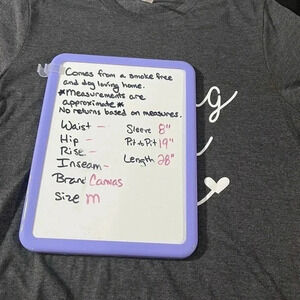 Comes from a smoke free
and dog loving home.
*Measurements are
approximate*
No returns based on measures.
Waist -
Hip -
Rise -
Inseam -
Brand Canvas
Size M
Sleeve 8"
Pit to Pit 19"
Length 28"